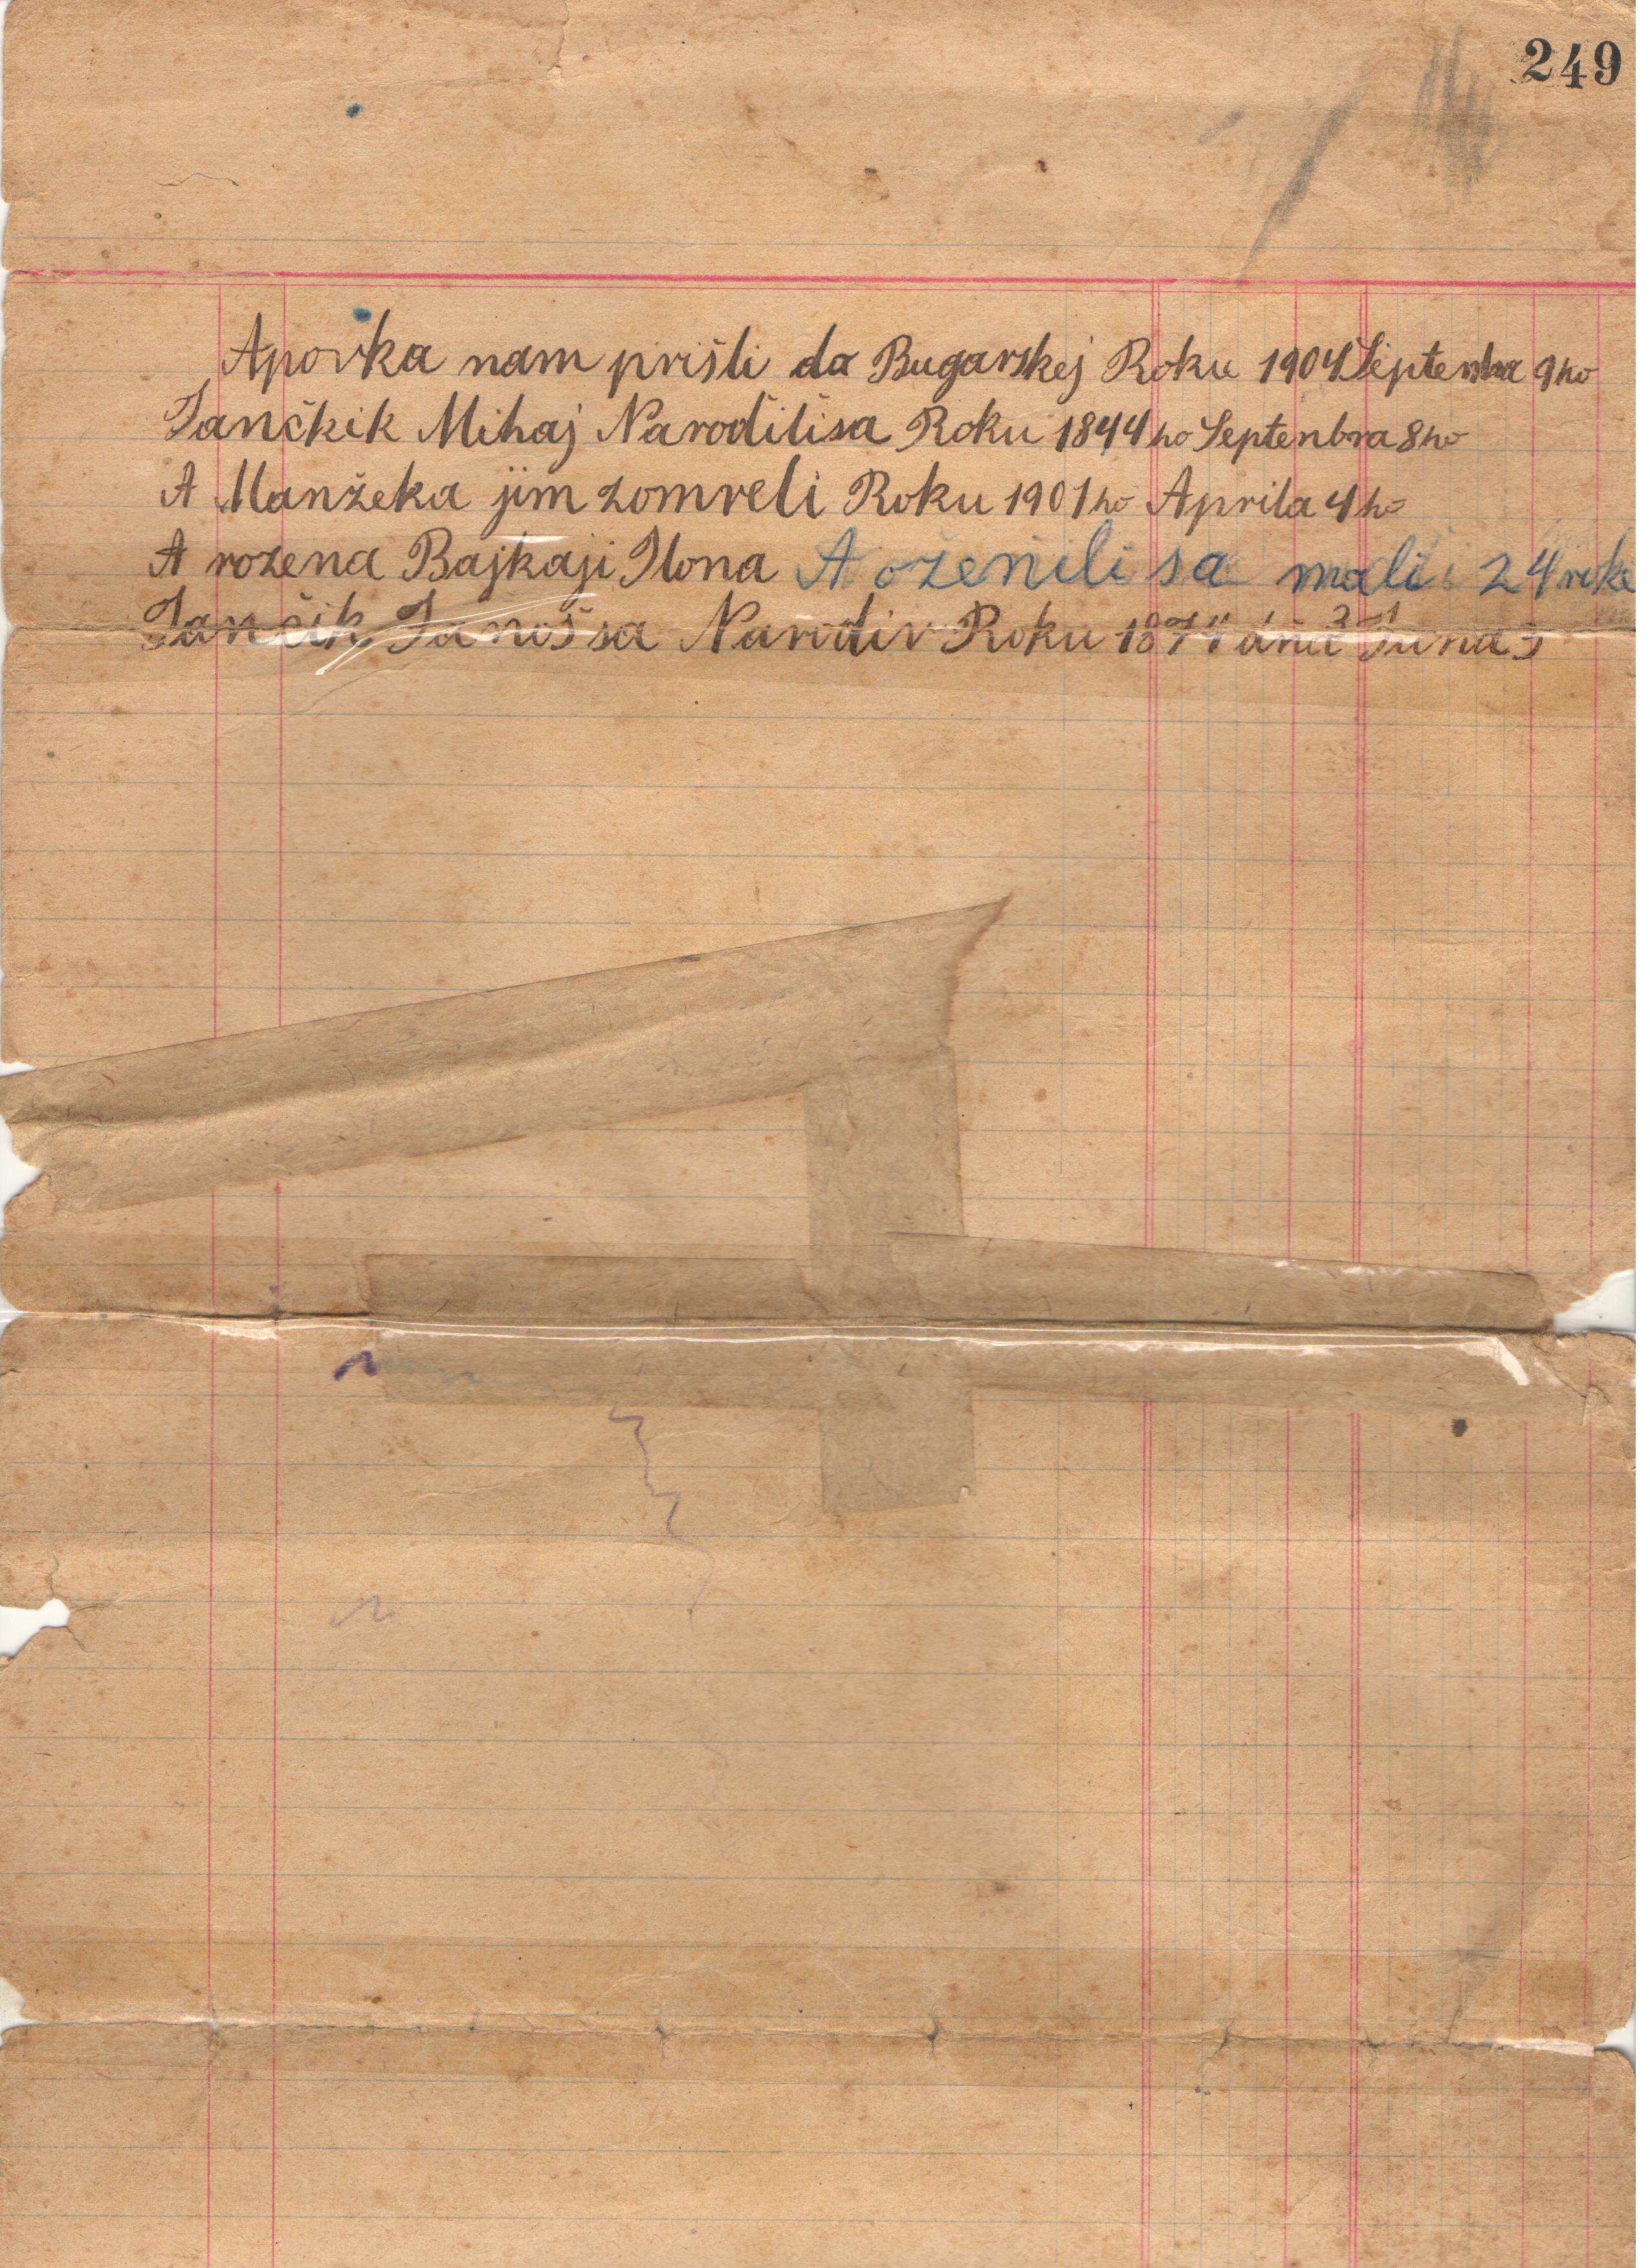 249
Apovka nam prišli do Bugarskej Roku 1904 Septenbra 9ho
Jančkik Mihaj Narodiliša Roku 1844ho Septenbra 8ho
A Manžeka jim zomreli Roku 1901ho Aprila 4ho
A rozena Bajkaji Ilona A oženili sa mali 24 roke
Jančik Janoš sa Narodiv Roku 1874 dňa